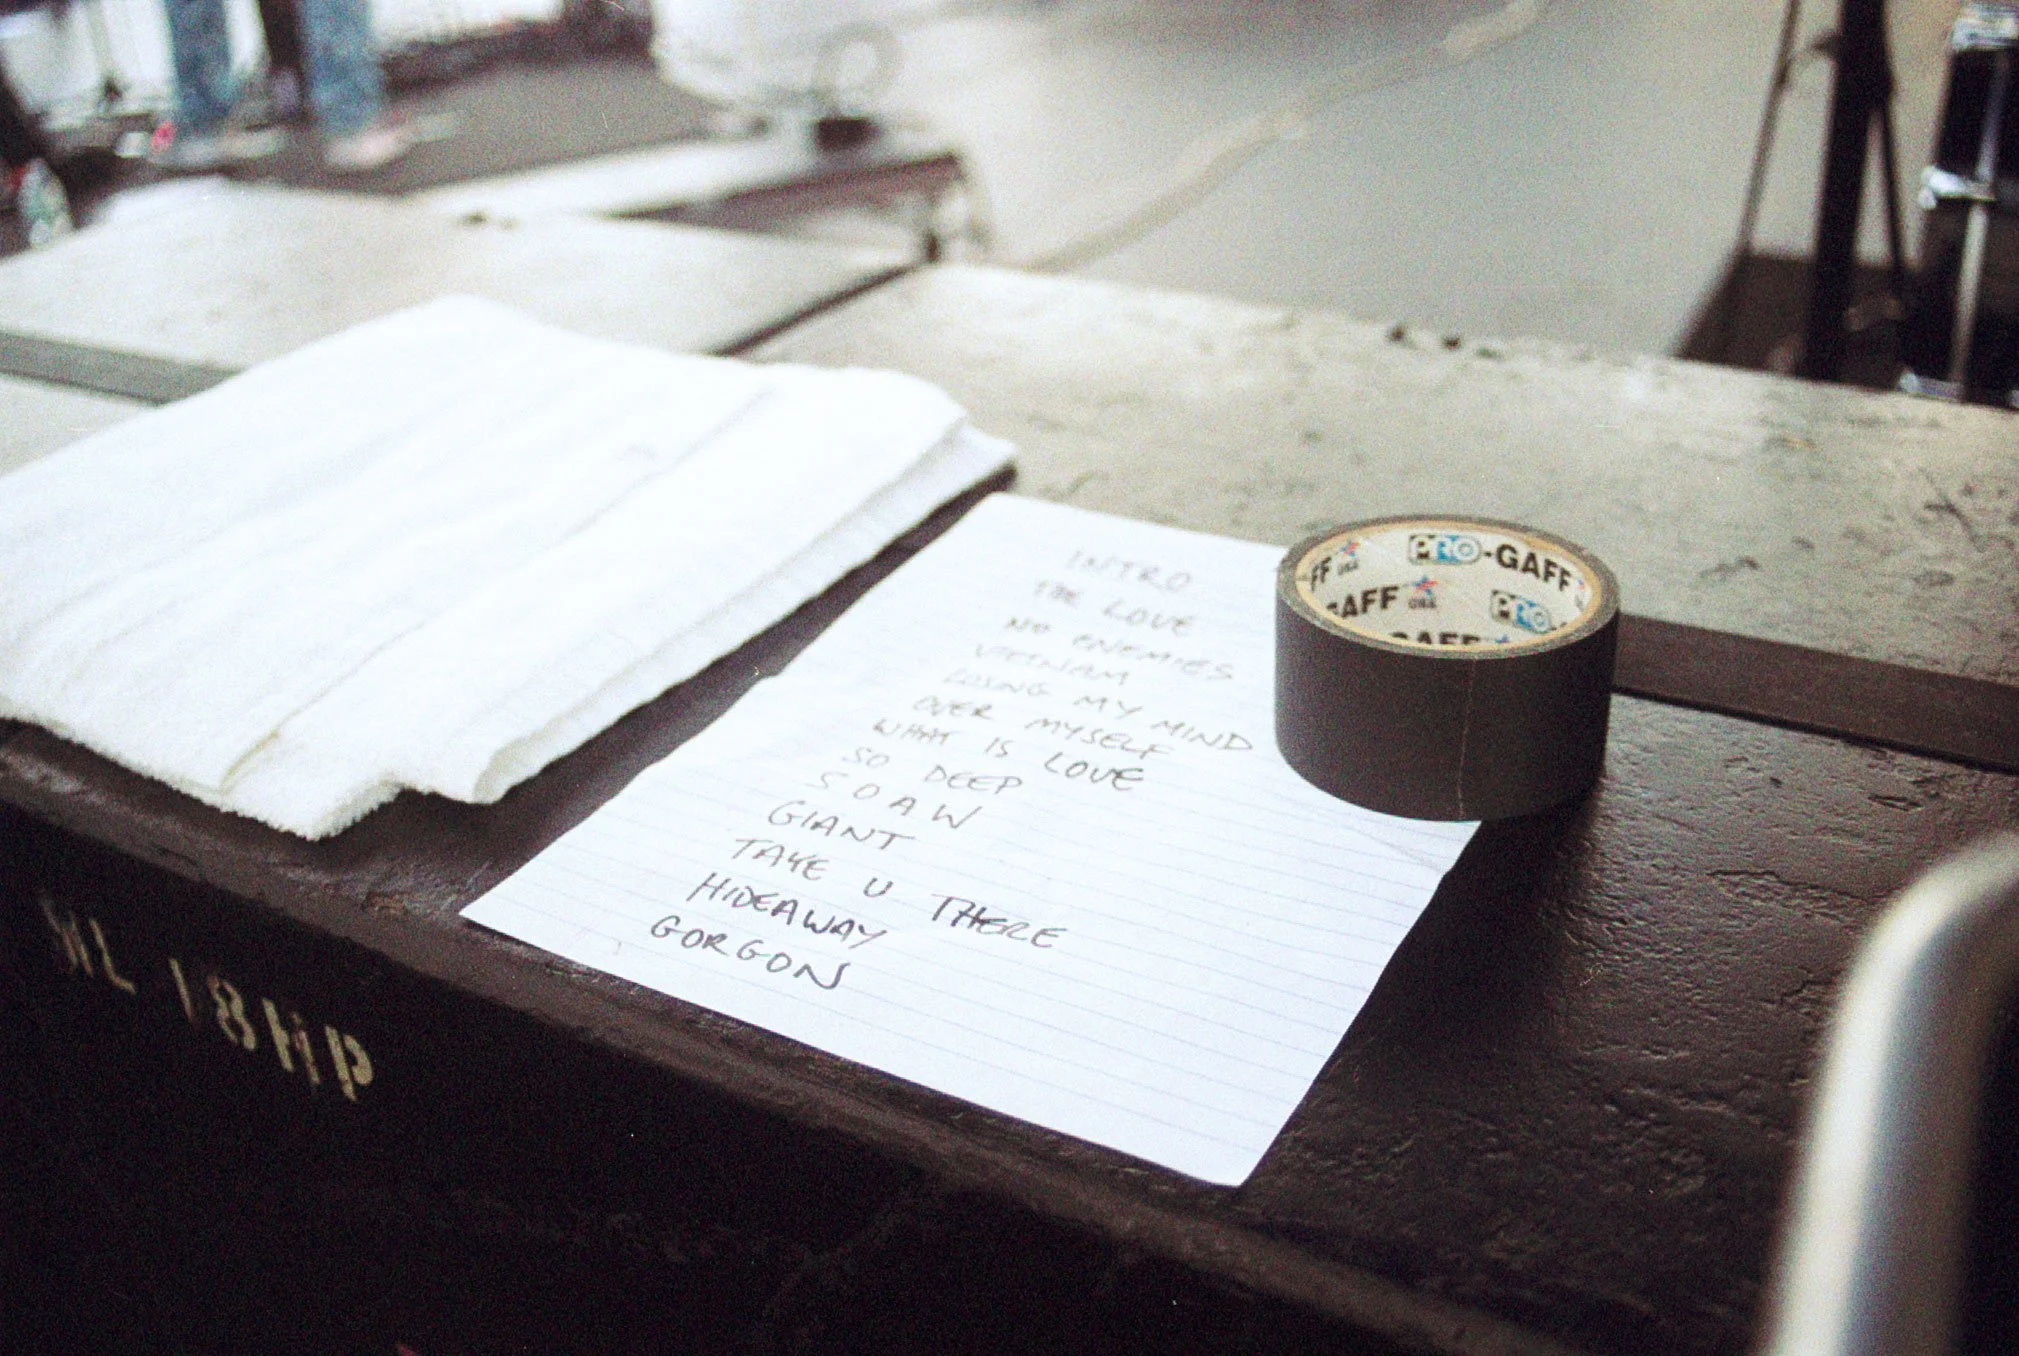 INTRO
LOVE
NO ENEMIES
VIETNAM
LOSING MY MIND
OVER MYSELF
WHAT IS LOVE
SO DEEP
SOAW
GIANT
TAKE U THERE
HIDEAWAY
GORGON
FF USA PRO-GAFF
GAFF USA PRO-
GAFF
WL 18HP